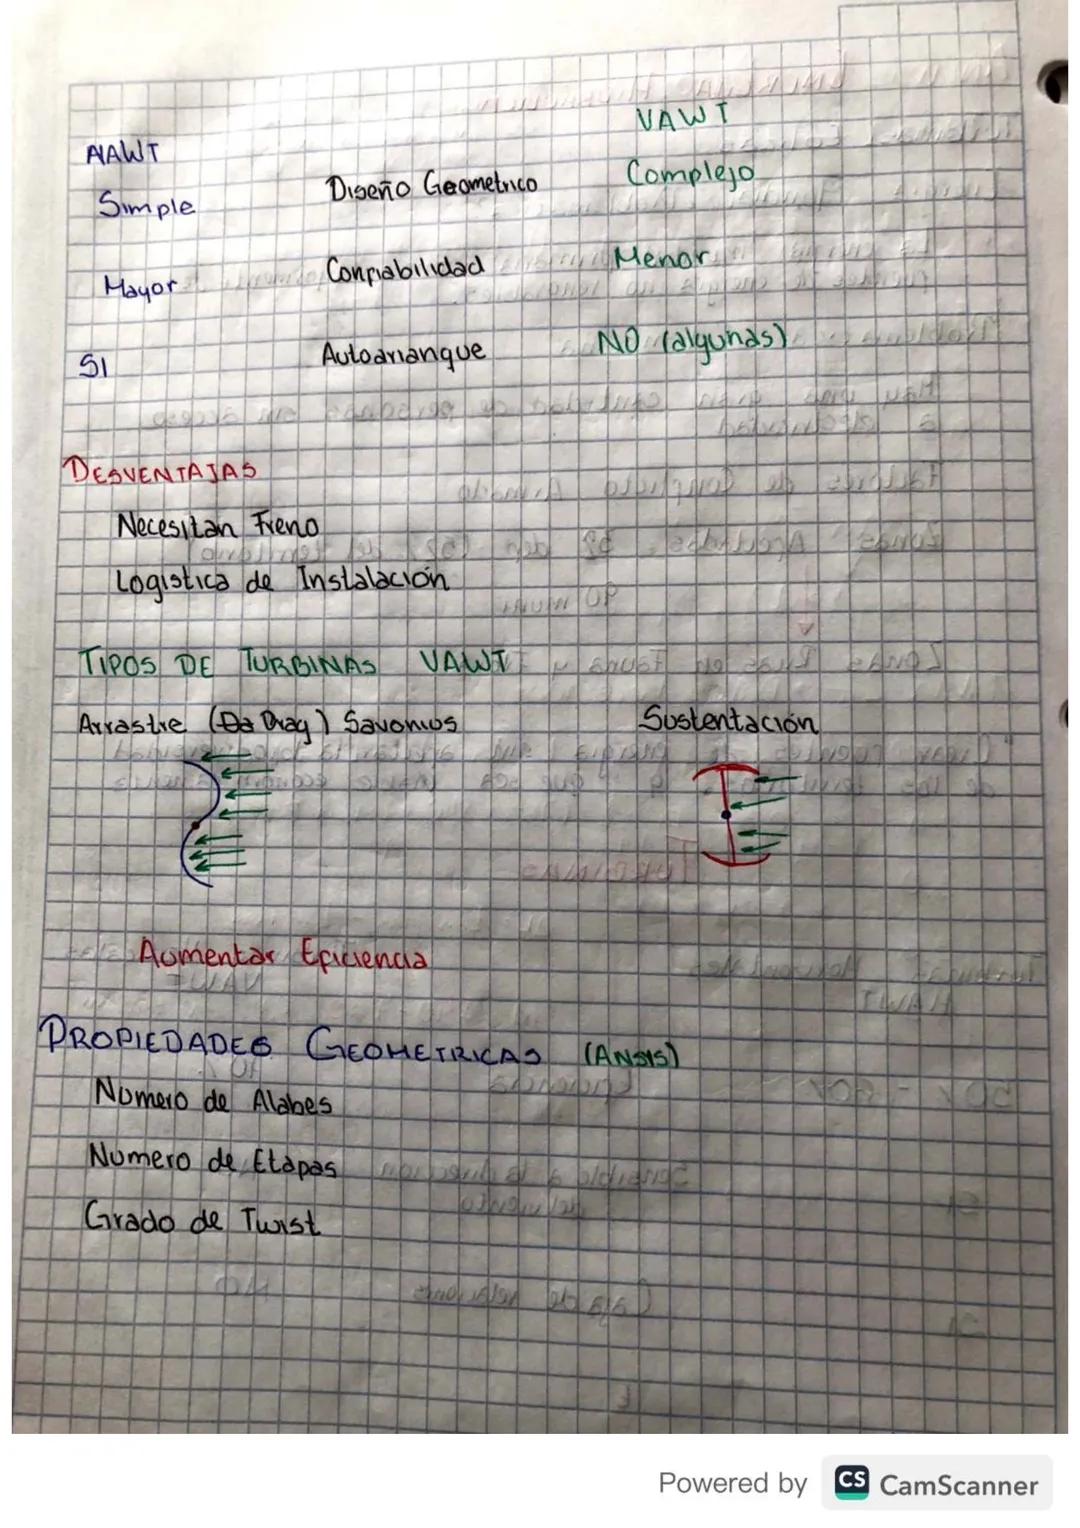 VAWT
HAWT
Simple Diseño Geometrico Complejo
Mayor Confiabilidad Menor
SI Autoarranque NO (algunas)
DESVENTAJAS
Necesitan Freno
Logistica de Instalación
TIPOS DE TURBINAS VAWT
Arrastre (Drag) Savonius Sustentación
Aumentar Eficiencia
PROPIEDADES GEOMETRICAS (ANSIS)
Numero de Alabes
Numero de Etapas
Grado de Twist
Powered by CS CamScanner